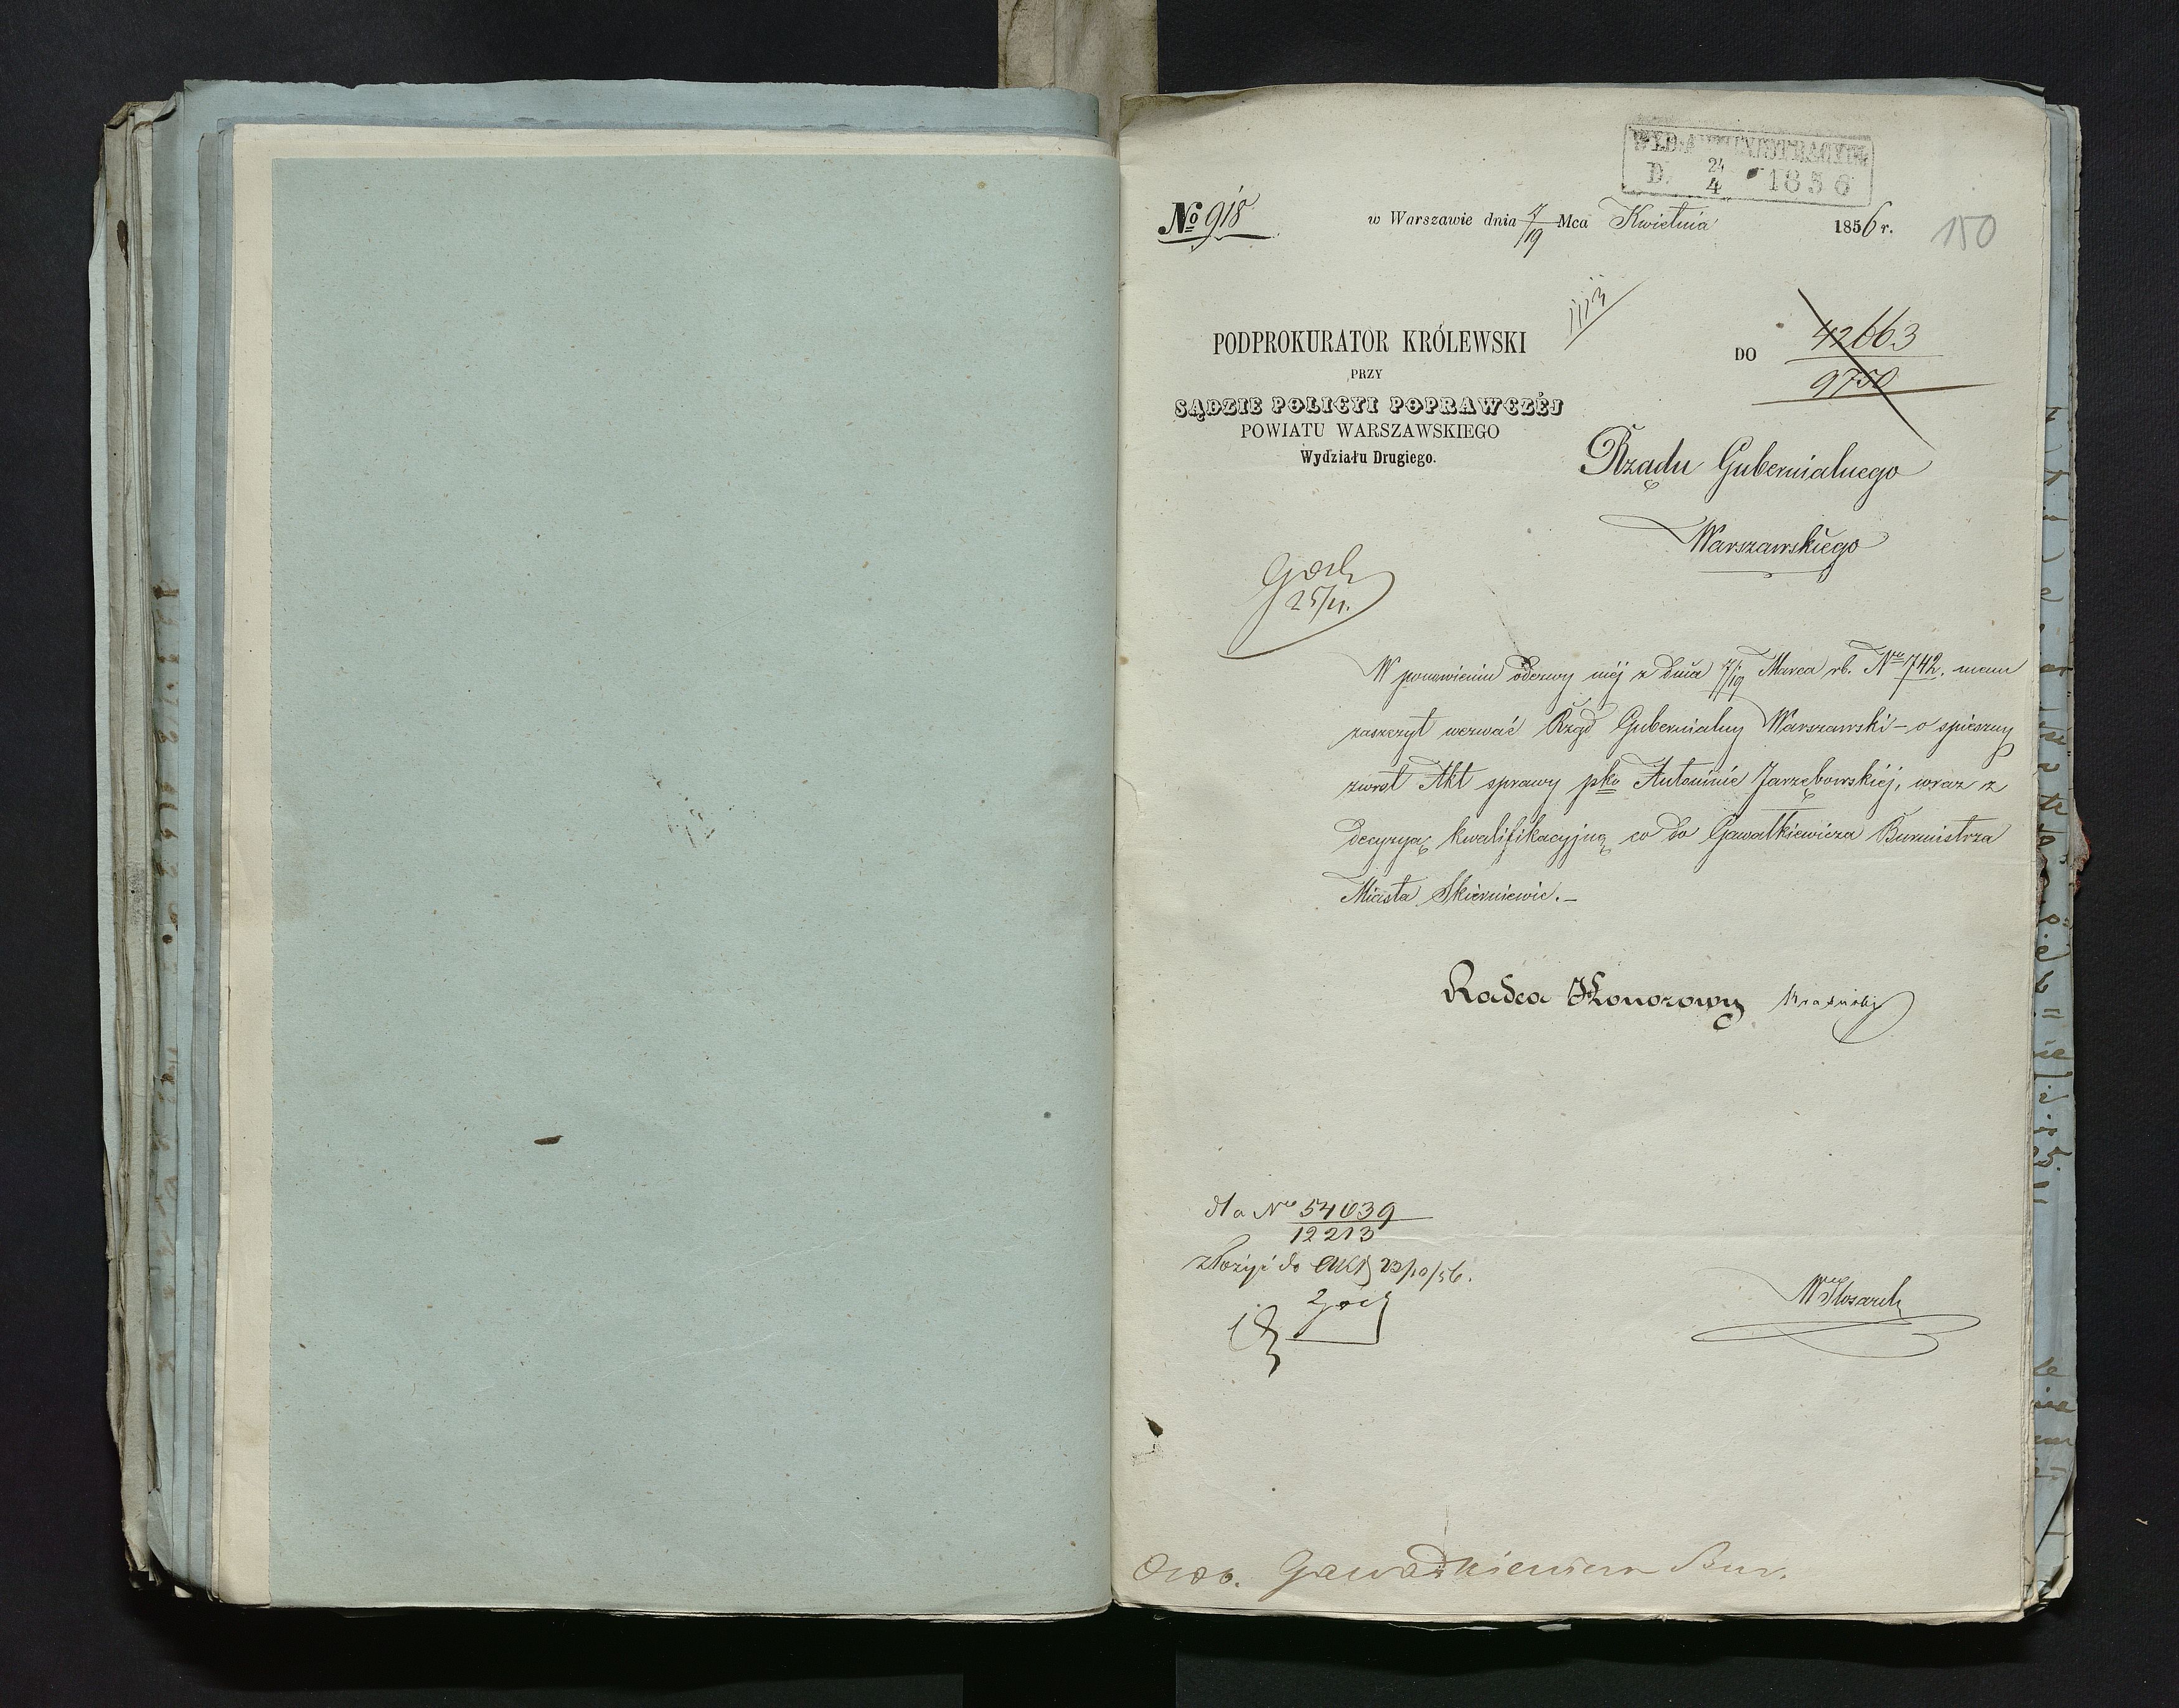 WYD. ADMINISTRACYJN.
D. 24/4 1856
№ 918
w Warszawie dnia 7/19 Mca Kwietnia 1856 r.
150
1113
PODPROKURATOR KRÓLEWSKI
PRZY
SĄDZIE POLICYI POPRAWCZÉJ
POWIATU WARSZAWSKIEGO
Wydziału Drugiego.
DO
42663
9750
Rządu Gubernialnego
Warszawskiego
25/4.
W ponowieniu odezwy méj z dnia 7/19 Marca rb. No 742. mam
zaszczyt wezwać Rząd Gubernialny Warszawski – o spieszny
zwrot Akt sprawy pko Antoninie Jarzębowskiéj, wraz z
decyzyą kwalifikacyjną co do Gawatkiewicza Burmistrza
Miasta Skierniewic. –
Radca Honorowy Krasuski
dla No 54039
12213
złożyć do Akt 23/10/56.
Osob. Gawatkiewicza Bur.